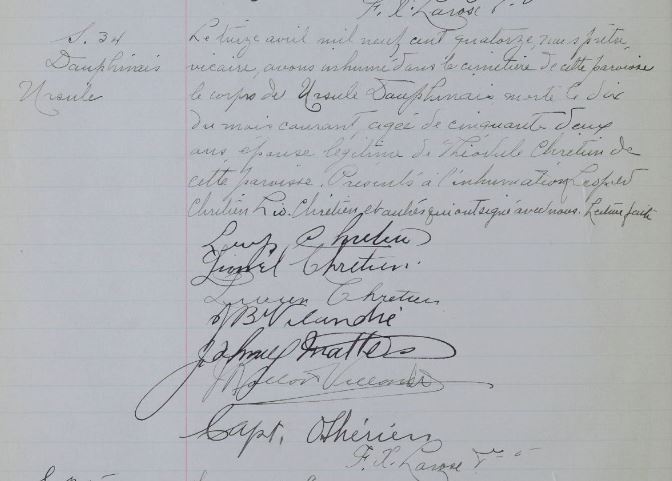 F. X. Larose
S. 34
Dauphinais
Ursule
Le treize avril mil neuf cent quatorze, nous prêtre,
vicaire, avons inhumé dans le cimetière de cette paroisse
le corps de Ursule Dauphinais morte le dix
du mois courant agée de cinquante deux
ans epouse légitime de Théodule Chretien de
cette paroisse. Presents à l'inhumation Leopold
Chrétien Ls. Chrétien, et autres qui ont signé avec nous. Lecture faite
Chretien
Lionel Chretien.
Lucien Chretien
J B Vilandré
Johnny Matters
Capt. O Thérien
F. X. Larose